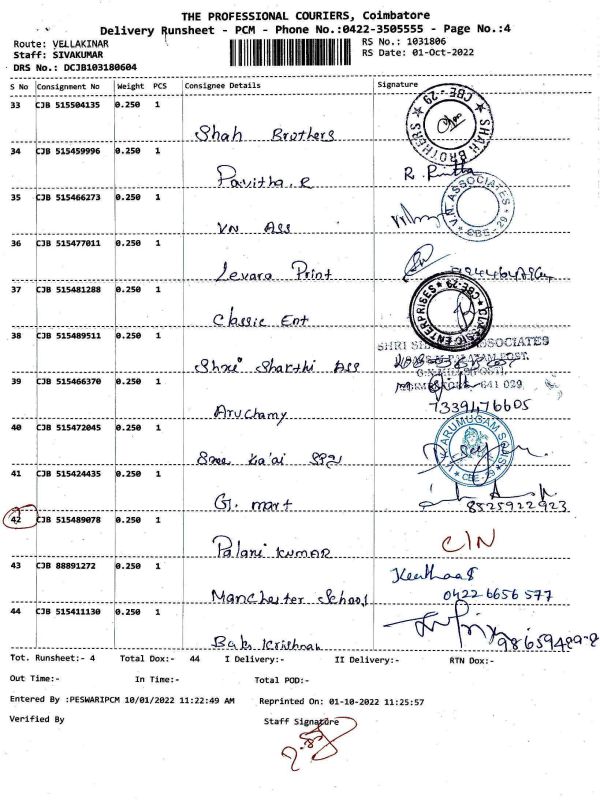 THE PROFESSIONAL COURIERS, Coimbatore
Delivery Runsheet - PCM - Phone No.:0422-3505555 - Page No.:4
Route: VELLAKINAR
RS No.: 1031806
Staff: SIVAKUMAR
RS Date: 01-Oct-2022
DRS No.: DCJB103180604
S No Consignment No Weight PCS Consignee Details Signature
33 CJB 515504135 0.250 1
Shah Brothers
SHAH BROTHERS CBE-29
34 CJB 515459996 0.250 1
Pavitha.R
35 CJB 515466273 0.250 1
VN ASS
V.N. ASSOCIATES CBE-29
36 CJB 515477011 0.250 1
Levara Print
37 CJB 515481288 0.250 1
Classic Ent
CLASSIC ENTERPRISES CBE-29
38 CJB 515489511 0.250 1
Shri Sharthi Ass
SHRI ASSOCIATES
641 029
39 CJB 515466370 0.250 1
Aruchamy
7339476605
40 CJB 515472045 0.250 1
Sree
ARUMUGAM CBE-29
41 CJB 515424435 0.250 1
G. mart
8525922923
42 CJB 515489078 0.250 1
Palani KUMAR
C/N
43 CJB 88891272 0.250 1
Manchester School
0422 6656 577
44 CJB 515411130 0.250 1
Bala Krishnan
Tot. Runsheet:- 4 Total Dox:- 44 I Delivery:- II Delivery:- RTN Dox:-
Out Time:- In Time:- Total POD:-
Entered By :PESWARIPCM 10/01/2022 11:22:49 AM Reprinted On: 01-10-2022 11:25:57
Verified By Staff Signature